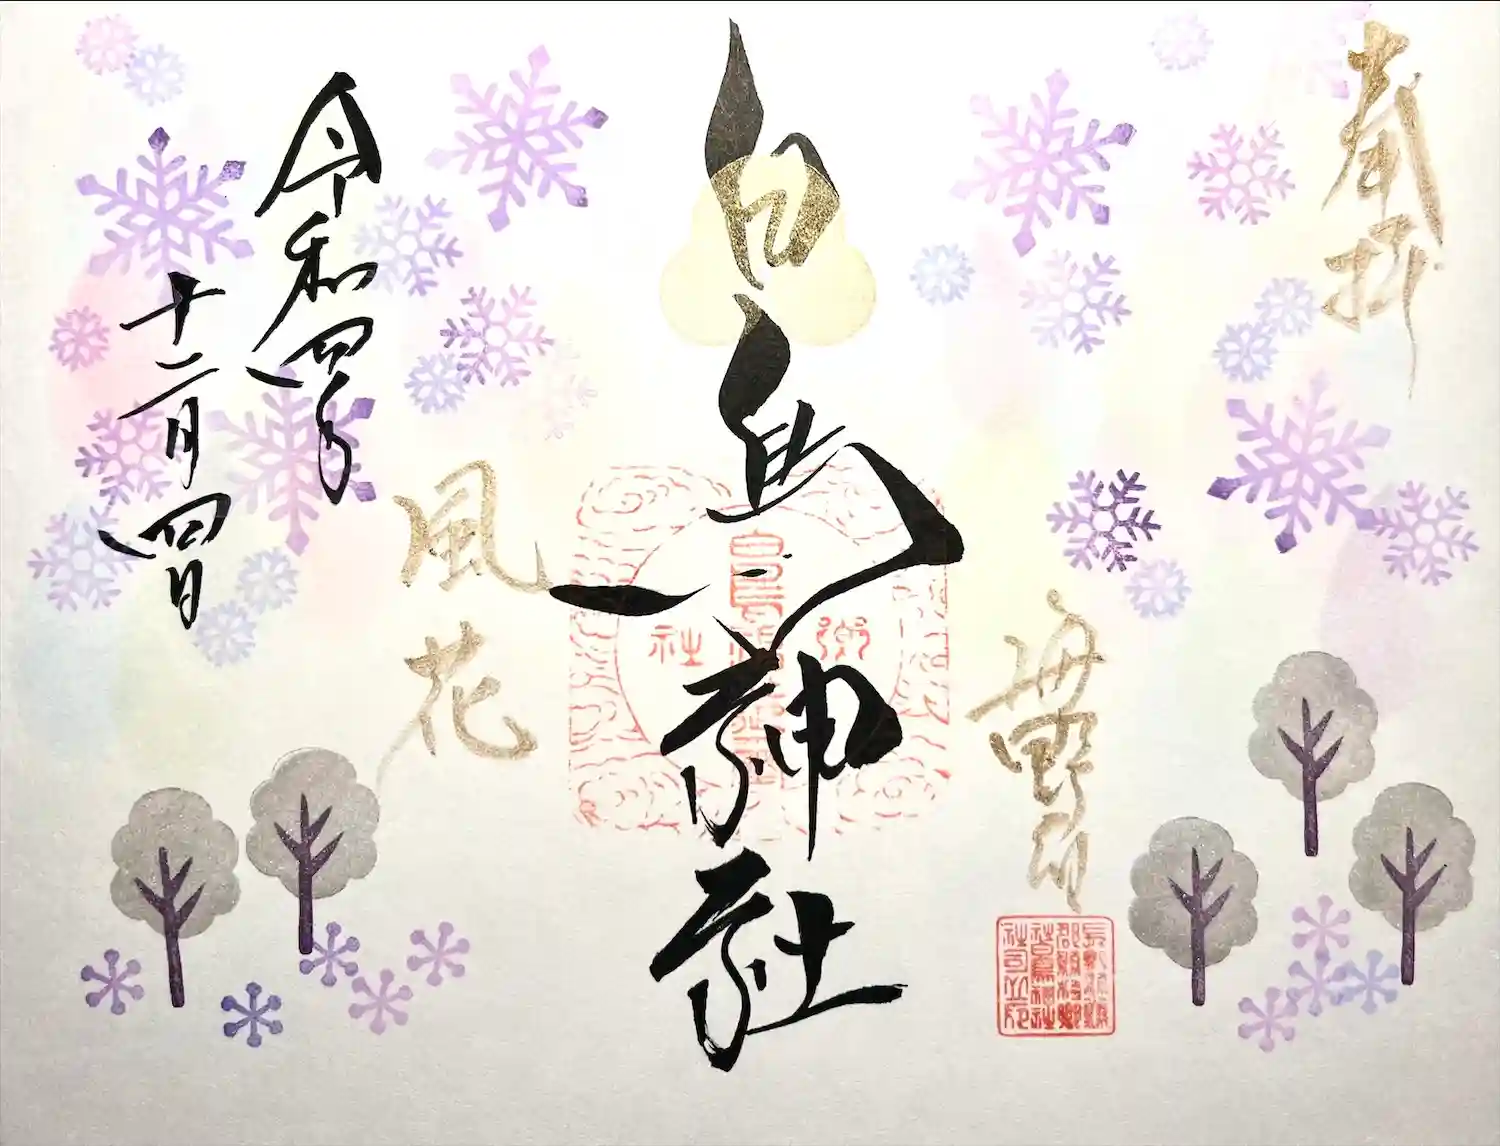 奉拝
海野宿
白鳥神社
風花
令和四年
十二月四日